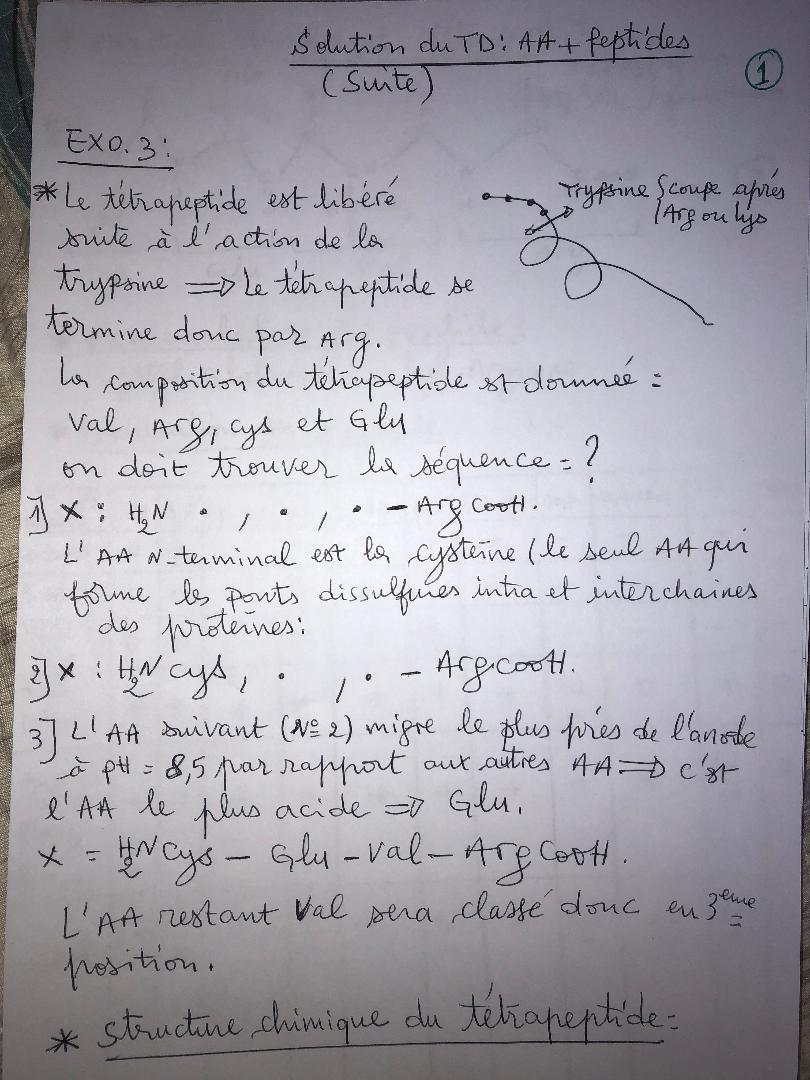 Solution du TD: AA + Peptides
(Suite)
1
EXO.3:
* Le tétrapeptide est libéré
suite à l'action de la
trypsine => Le tétrapeptide se
termine donc par Arg.
Trypsine { coupe après
Arg ou Lys
La composition du tétrapeptide est donnée =
Val, Arg, cys et Glu
on doit trouver la séquence = ?
1] X : H2N • , • , • - Arg COOH.
L'AA N-terminal est la cystéine (le seul AA qui
forme les ponts dissulfures intra et interchaines
des protéines:
2] X : H2N Cys, • , • - Arg COOH.
3] L'AA suivant (N° 2) migre le plus près de l'anode
à pH = 8,5 par rapport aux autres AA => c'est
l'AA le plus acide => Glu.
X = H2N Cys - Glu - Val - Arg COOH.
L'AA restant Val sera classé donc en 3eme
position.
* Structure chimique du tétrapeptide =